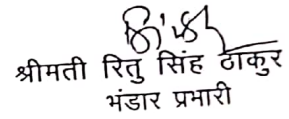 श्रीमती रितु सिंह ठाकुर
भंडार प्रभारी